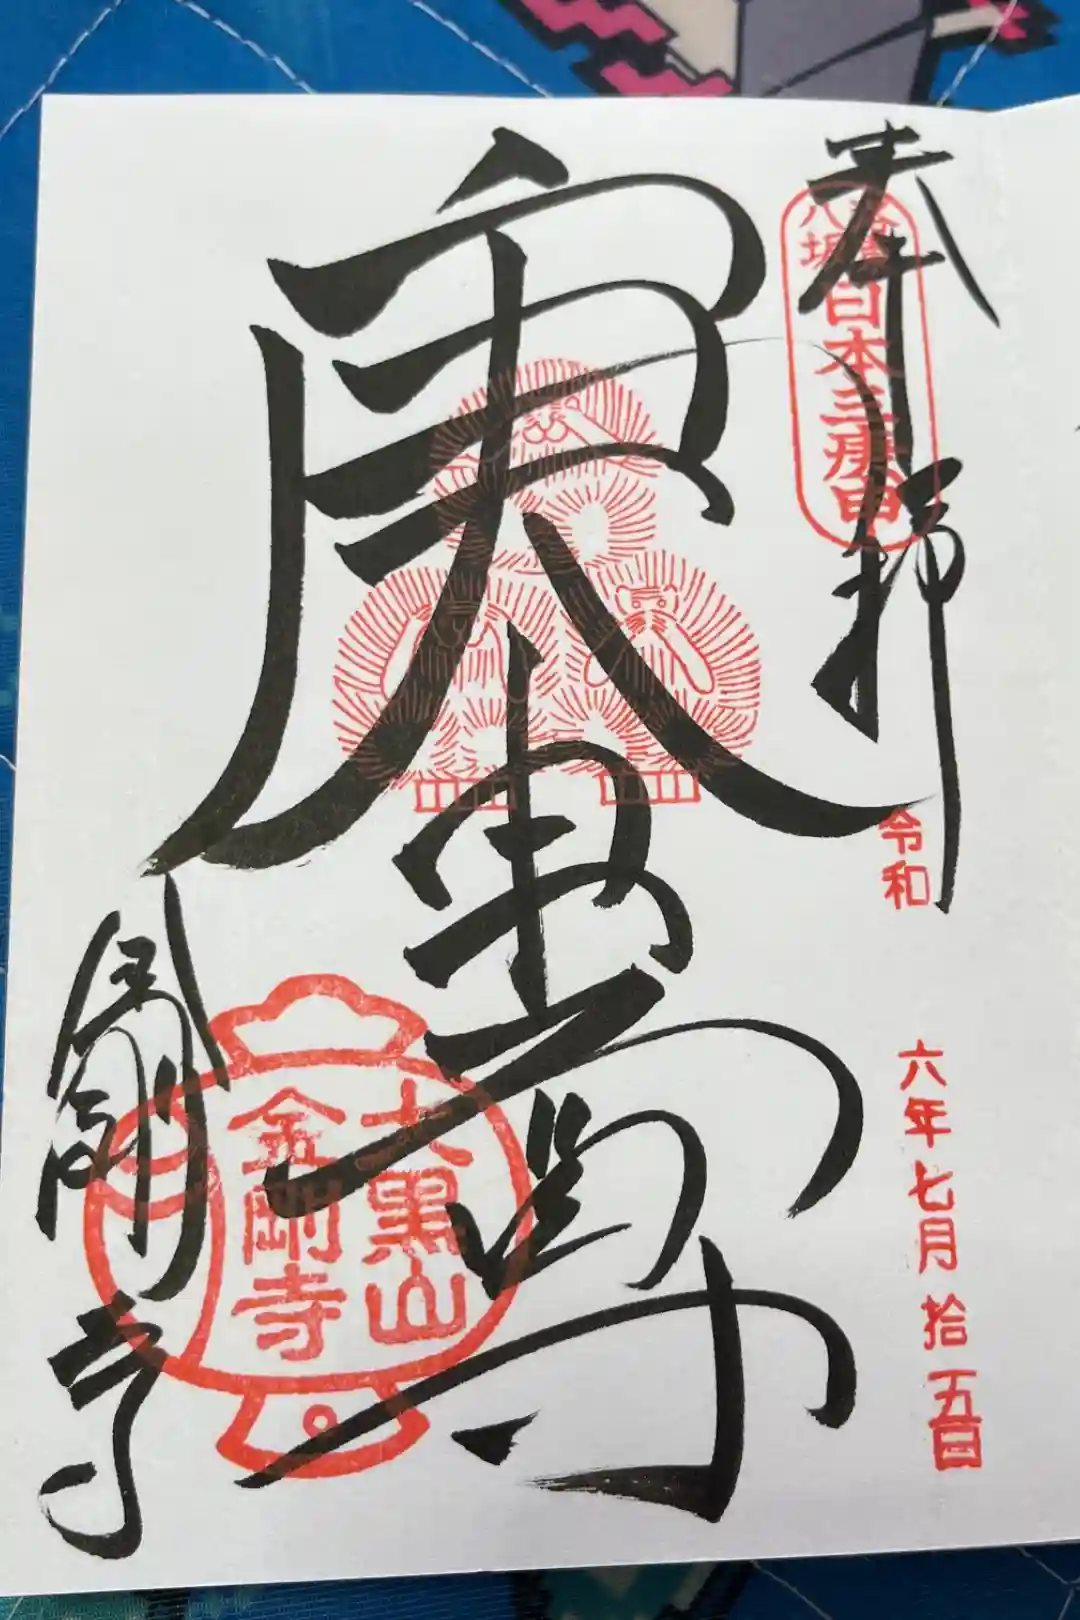 奉拝
八坂
日本三庚申
令和六年七月拾五日
庚申尊
大黒山
金剛寺
金剛寺